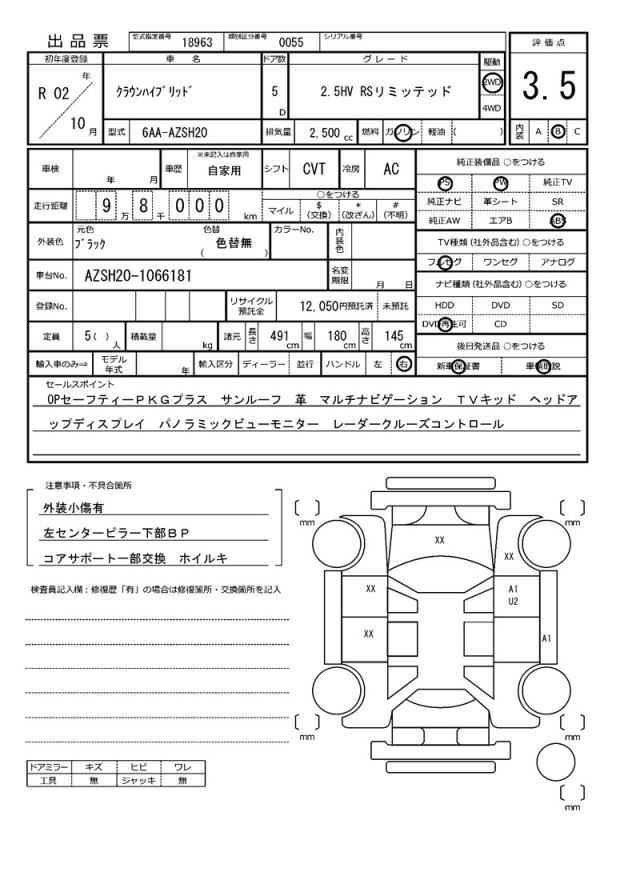 出品票 型式指定番号 18963 類別区分番号 0055 シリアル番号
初年度登録 車 名 ドア数 グレード 駆動 評価点
R 02 年 10 月 クラウンハイブリッド 5 D 2.5HV RSリミッテッド 2WD 4WD 3.5
型式 6AA-AZSH20 排気量 2,500 cc 燃料 ガソリン 軽油 ( ) 内装 A B C
車検 年 月 車歴 ※未記入は自家用 自家用 シフト CVT 冷房 AC 純正装備品 ○をつける
PS PW 純正TV
走行距離 9 万 8 千 0 0 0 km ○をつける 純正ナビ 革シート SR
マイル $ (交換) * (改ざん) # (不明) 純正AW エアB ABS
外装色 元色 ブラック 色替 ( 色替無 ) カラーNo. 内装色 TV種類 (社外品含む) ○をつける
フルセグ ワンセグ アナログ
車台No. AZSH20-1066181 名変期限 月 日 ナビ種類 (社外品含む) ○をつける
登録No. リサイクル預託金 12,050円預託済 未預託 HDD DVD SD
DVD再生可 CD
定員 5( ) 人 積載量 kg 諸元 長さ 491 cm 幅 180 cm 高さ 145 cm 後日発送品 ○をつける
輸入車のみ⇒ モデル年式 年 輸入区分 ディーラー 並行 ハンドル 左 右 新車保証書 車輌取説
セールスポイント
OPセーフティーPKGプラス サンルーフ 革 マルチナビゲーション TVキッド ヘッドア
ップディスプレイ パノラミックビューモニター レーダークルーズコントロール
注意事項・不具合箇所
外装小傷有
左センターピラー下部BP
コアサポート一部交換 ホイルキ
検査員記入欄:修復歴「有」の場合は修復箇所・交換箇所を記入
ドアミラー キズ ヒビ ワレ
工具 無 ジャッキ 無
[ ] mm [ ] mm
XX
XX
XX A1
U2
XX A1
[ ] mm [ ] mm
[ ] mm